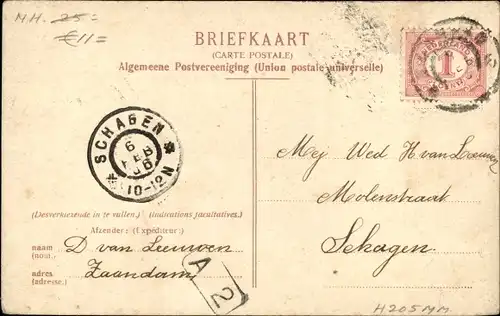 M.H. 25=
€11=
BRIEFKAART
(CARTE POSTALE)
Algemeene Postvereeniging (Union postale universelle)
NEDERLAND
1
SCHAGEN
9 FEB 06
10-12N
Mej Wed H. van Leeuwen
Molenstraat
Schagen
(Desverkiezende in te vullen.) (Indications facultatives.)
Afzender: (Expéditeur:)
naam (nom). D van Leeuwen
adres (adresse.) Zaandam
A 2
H205MM